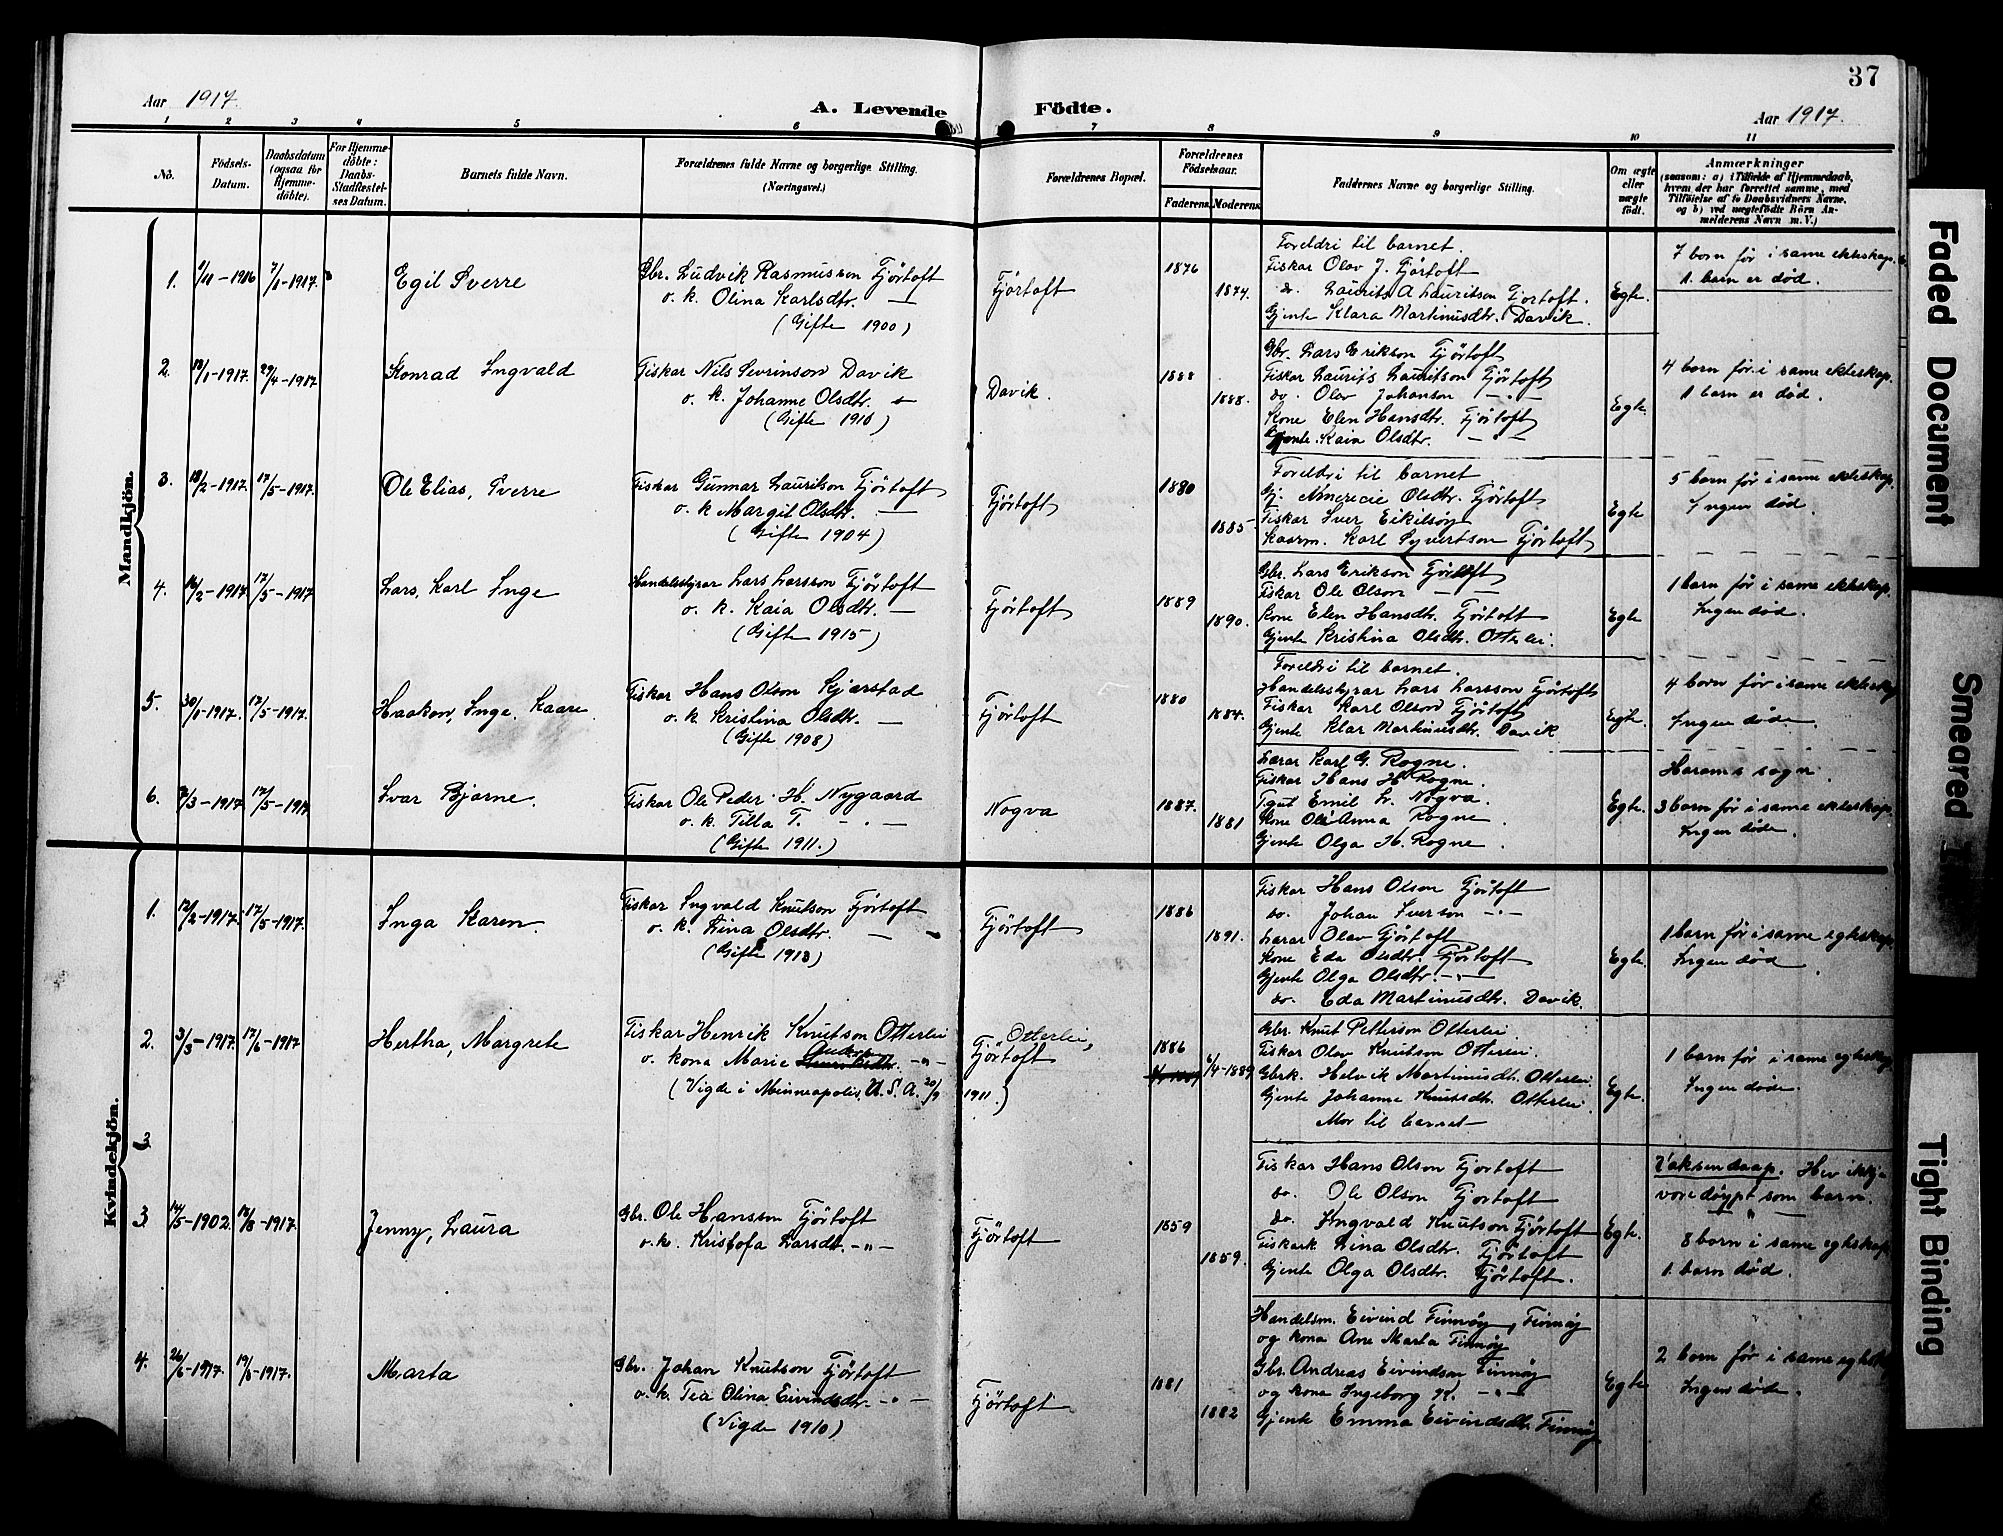 37
Aar 1917.
A. Levende Födte.
Aar 1917.
1 2 3 4 5 6 7 8 9 10 11
No.
Födsels-Datum.
Daabsdatum (ogsaa for Hjemme-döbte).
For Hjemme-döbte: Daabs-Stadfæstel-ses Datum.
Barnets fulde Navn.
Forældrenes fulde Navne og borgerlige Stilling.
(Næringsvei.)
Forældrenes Bopæl.
Forældrenes Födselsaar.
Faderens. Moderens.
Faddernes Navne og borgerlige Stilling.
Om ægte eller uægte födt.
Anmærkninger
(saasom: a) i Tilfælde af Hjemmedaab,
hvem der har forrettet samme, med
Tilföielse af to Daabsvidners Navne,
og b) ved uægtefödte Börn An-
melderens Navn m. V.)
Mandkjön.
1. 1/11-1916 7/1-1917. Egil Sverre
Gbr. Ludvik Rasmusson Fjörtoft
o. k. Olina Karlsdtr. —
(Gifte 1900)
Fjörtoft
1876
1874.
Foreldri til barnet.
Fiskar Olav J. Fjörtoft
do. Laurits A Lauritson Fjortoft.
Gjente Klara Martinusdtr. Davik.
Egte.
7 born før i same ekteskap.
1. barn er død.
2. 13/1-1917. 29/4-1917 Konrad Ingvald
Fiskar Nils Sevrinson Davik
o. k. Johanne Olsdtr.
(Gifte 1910)
Davik.
1888
1888.
Gbr. Lars Erikson Fjörtoft
Fiskar Laurits Lauritson Fjörtoft
do. Olav Johanson — " —
Kone Elen Hansdtr. Fjörtoft
Gjente Kaia Olsdtr. — " —
Egte.
4 born før i same ekteskap.
1 barn er død.
3. 18/2-1917. 17/5-1917. Ole Elias, Sverre
Fiskar Gunnar Lauritson Fjörtoft
o. k Margit Olsdtr. —
(Gifte 1904)
Fjörtoft
1880
1885
Foreldri til barnet
Gj. Amerecie Olsdtr. Fjörtoft.
Fiskar Iver Eikilsøy
Kaarm. Karl Syvertson Fjörtoft
Egte
5 born før i same ekteskap.
Ingen død.
4. 16/2-1917 17/5-1917 Lars, Karl Inge
Handelsstyrar Lars Larsson Fjörtoft
o. k. Kaia Olsdtr. —
(Gifte 1915)
Fjörtoft
1889
1890.
Gbr. Lars Erikson Fjörtoft
Fiskar Ole Olson — " —
Kone Elen Hansdtr. Fjörtoft
Gjente Kristina Olsdtr. Otterlei.
Egte
1 barn før i same ekteskap.
Ingen død.
5. 30/1-1917. 17/5-1917. Haakon, Inge, Kaare
Fiskar Hans Olson Kjærstad
o. k Kristina Olsdtr. —
(Gifte 1908)
Fjörtoft
1880
1884.
Foreldri til barnet.
Handelsstyrar Lars Larsson Fjörtoft
Fiskar Karl Olson Fjörtoft
Gjente Klar Martinusdtr. Davik
Egte.
4 born før i same ekteskap
Ingen døde.
6. 7/3-1917 17/5-1917 Ivar Bjarne.
Fiskar Ole Peder H. Nygaard
o. k. Tilla T. — " —
(Gifte 1911.)
Nogva
1887.
1881
Lærar Karl G. Rogne.
Fiskar Hans H. Rogne.
Tgut Emil L. Nogva.
Kone Ole Anna Rogne.
Gjente Olga H. Rogne.
Egte.
Harams sogn.
3 born før i same ekteskap.
Ingen døde.
Kvindekjön.
1. 12/2-1917. 17/5-1917. Inga Karen.
Fiskar Ingvald Knutson Fjörtoft
o. k. Lina Olsdtr. —
(Gifte 1913)
Fjörtoft
1886
1891.
Fiskar Hans Olson Fjörtoft
do. Johan Iverson — " —
Lærar Olav Fjörtoft
Kone Eda Olsdtr. Fjörtoft
Gjente Olga Olsdtr. — " —
do. Eda Martinusdtr. Davik.
Egte.
1 barn før i same egteskap
Ingen død.
2. 3/3-1917. 17/6-1917 Hertha, Margrete
Fiskar Henrik Knutson Otterlei
o. kona Marie — " —
(Vigde i Minneapolis, U. S. A. 20/9 1911)
Otterlei,
Fjörtoft
1886
6/4-1889
Gbr. Knut Petterson Otterlei
Fiskar Olav Knutson Otterlei.
Gbrk. Helvik Martinusdtr. Otterlei.
Gjente Johanne Knutsdtr. Otterlei.
Mor til barnet
Egte.
1 barn før i same egteskap
Ingen døde.
3
3. 14/5-1902. 19/8-1917. Jenny, Laura
Gbr. Ole Hansson Fjörtoft
o. k. Kristofa Larsdtr. — " —
Fjörtoft
1859
1859.
Fiskar Hans Olson Fjortoft
do. Ole Olson Fjortoft
do. Ingvald Knutson Fjörtoft
Fiskark Lina Olsdtr. Fjörtoft
Gjente Olga Olsdtr. Fjörtoft.
Egte.
Vaksendaap. Hev ikkje
vore døypt som barn.
— " —
8 born i same egteskap
1. barn død.
4. 26/6-1917. 19/8-1917. Marta
Gbr. Johan Knutson Fjörtoft
o. k. Tea Olina Eivindsdtr. — " —
(Vigde 1910)
Fjörtoft
1881
1882
Handelsm. Eivind Finnøy, Finnøy
og kona Ane Marta Finnøy
Gbr. Andreas Eivindson Finnøy
og kona Ingeborg K. — " —
Gjente Emma Eivindsdtr. Finnøy
Egte
2 born før i same egteskap
Ingen døde.
Faded Document
Smeared
Tight Binding